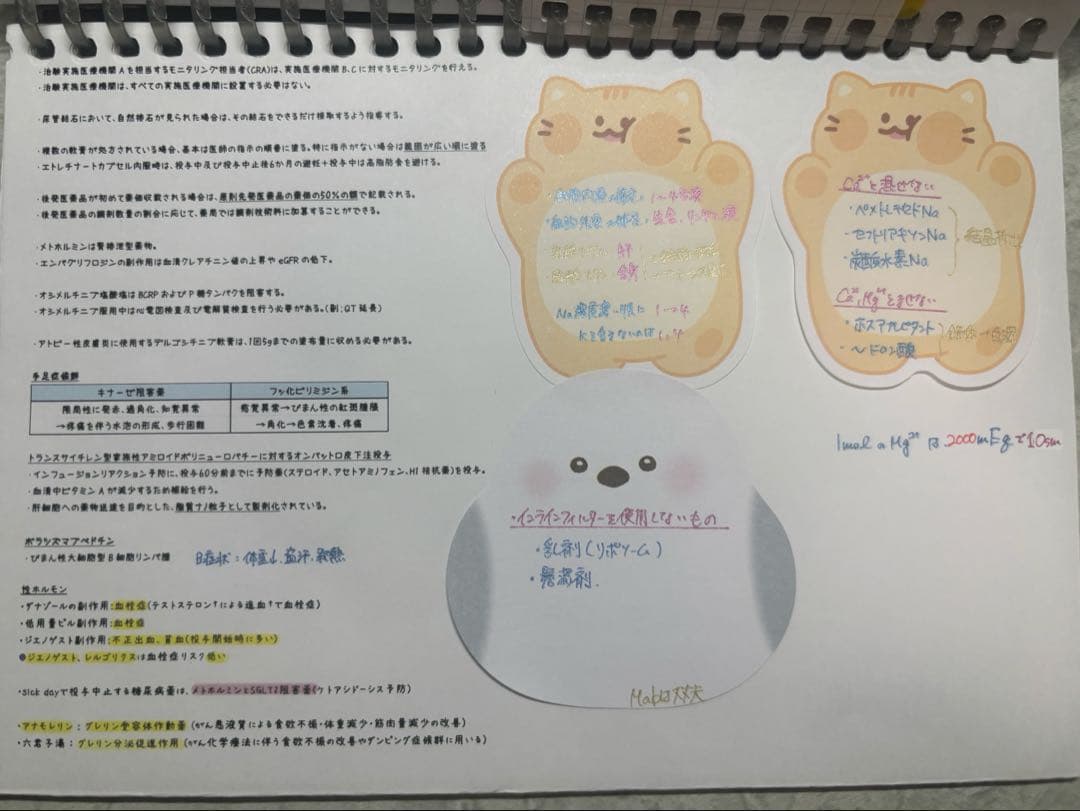 ・治験実施医療機関Aを担当するモニタリング担当者(CRA)は、実施医療機関B、Cに対するモニタリングを行える。
・治験実施医療機関は、すべての実施医療機関に設置する必要はない。
・尿管結石において、自然排石が見られた場合は、その結石をできるだけ採取するよう指導する。
・複数の軟膏が処方されている場合、基本は医師の指示の順番に塗る。特に指示がない場合は範囲が広い順に塗る
・エトレチナートカプセル内服時は、投与中及び投与中止後6か月の避妊+投与中は高脂肪食を避ける。
・後発医薬品が初めて薬価収載される場合は、原則先発医薬品の薬価の50%の額で記載される。
・後発医薬品の調剤数量の割合に応じて、薬局では調剤技術料に加算することができる。
・メトホルミンは腎排泄型薬物。
・エンパグリフロジンの副作用は血清クレアチニン値の上昇やeGFRの低下。
・オシメルチニブ塩酸塩はBCRPおよびP糖タンパクを阻害する。
・オシメルチニブ服用中は心電図検査及び電解質検査を行う必要がある。(副:QT延長)
・アトピー性皮膚炎に使用するデルゴシチニブ軟膏は、1回5gまでの塗布量に収める必要がある。
手足症候群
キナーゼ阻害薬 フッ化ピリミジン系
限局性に発赤、過角化、知覚異常 感覚異常→びまん性の紅斑腫脹
→疼痛を伴う水泡の形成、歩行困難 →角化→色素沈着、疼痛
トランスサイチレン型家族性アミロイドポリニューロパチーに対するオンパットロ皮下注投与
・インフュージョンリアクション予防に、投与60分前までに予防薬(ステロイド、アセトアミノフェン、H1拮抗薬)を投与。
・血清中ビタミンAが減少するため補給を行う。
・肝細胞への薬物送達を目的とした、脂質ナノ粒子として製剤化されている。
ポラツズマブベドチン
・びまん性大細胞型B細胞リンパ腫 B症状:体重↓、盗汗、発熱
性ホルモン
・ダナゾールの副作用:血栓症(テストステロン↑による造血↑で血栓症)
・低用量ピル副作用:血栓症
・ジエノゲスト副作用:不正出血、貧血(投与開始時に多い)
●ジエノゲスト、レルゴリクスは血栓症リスク低い
・sick dayで投与中止する糖尿病薬は、メトホルミンとSGLT2阻害薬(ケトアシドーシス予防)
・アナモレリン:グレリン受容体作動薬(がん悪液質による食欲不振・体重減少・筋肉量減少の改善)
・六君子湯:グレリン分泌促進作用(がん化学療法に伴う食欲不振の改善やダンピング症候群に用いる)
Na濃度高い順に 1→4
Kを含まないのは 1、4
Ca²⁺と混ぜない
・ペメトレキセドNa
・セフトリアキソンNa
・炭酸水素Na
Ca²⁺、Mg²⁺とまぜない
・ホスアプレピタント
・〜ドロン酸
1molのMg²⁺は2000mEqで10sm
・インラインフィルターを使用しないもの
・乳剤(リポソーム)
・懸濁剤
Mabは大丈夫